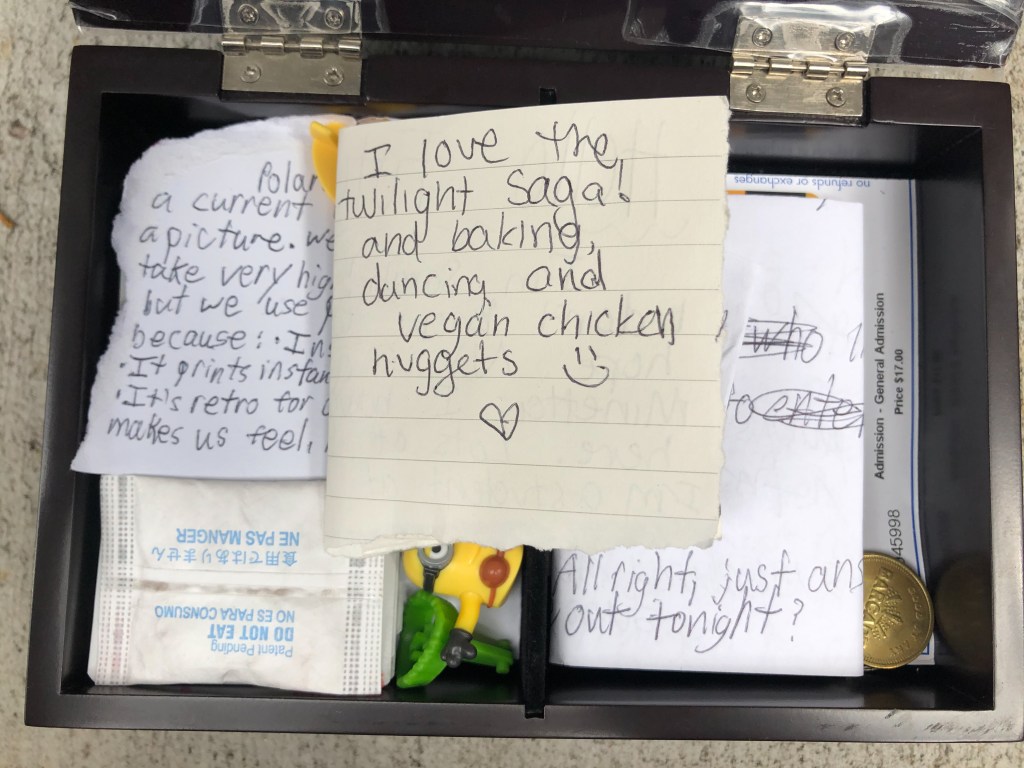 I love the
twilight Saga!
and baking,
dancing and
vegan chicken
nuggets
Polar
a current
a picture. we
take very hig
but we use
because: · In
· It prints instan
· It's retro for
makes us feel,
no refunds or exchanges
who
to ente
All right, just ans
out tonight?
Admission - General Admission
Price $17.00
45998
Patent Pending
DO NOT EAT
NO ES PARA CONSUMO
食用ではありません
NE PAS MANGER